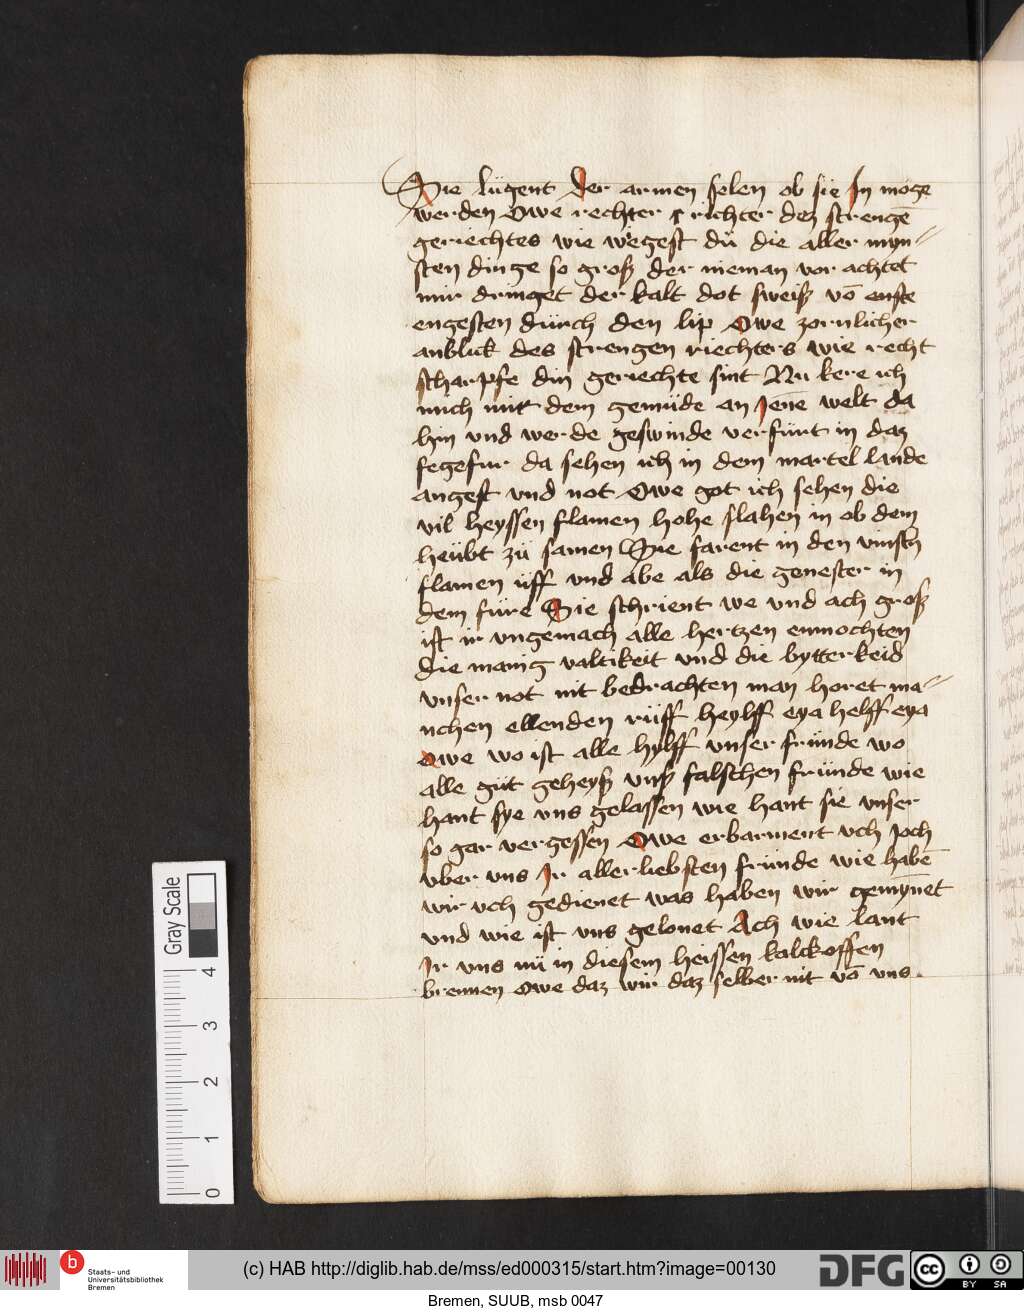 Sie lugent der armen selen ob sie In möge
werden Owe rechter r richter dez strengē
geriechtes wie wegest dü die aller myn//
sten dinge so groß der nieman vor achtet
mir dringet der kalt dot sweiß vō
engesten dürch den lip Owe zornlicher
anblick des strengen riechters wie recht
scharpfe din geriechte sint Nu kere ich
mich mit dem gemüde an Jene welt da
hin und werde geswinde verfürt in daz
fegefur da sehen ich in dem martel lande
angest vnd not Owe got ich sehen die
vil heyssen flamen hohe slahen in ob dem
heübt zü samen Sie farent in den vinstn
flamen üff vnd abe als die genester in
dem füre Sie schrient we vnd ach groß
ist ir vngemach alle hertzen enmochten
die manig valtikeit vnd die bytterkeid
vnser not nit bedrachten man horet ma//
nchen ellenden rüff heylff eya helff eya
Owe wo ist alle hylff vnser fründe wo
alle güt geheyß vnß falschen fründe wie
hant sye vns gelassen wie hant sie vnser
so gar vergessen Owe erbarment vch Joch
vber vns Ir allerliebsten fründe wie habē
wir vch gedienet was haben wir gemynet
vnd wie ist vns gelonet Ach wie lant
Ir vns nü in diesem heissen kalckoffen
brennen Owe daz wir daz selber nit vō vns
Gray Scale
4
3
2
1
0
b
Staats- und
Universitätsbibliothek
Bremen
(c) HAB http://diglib.hab.de/mss/ed000315/start.htm?image=00130
DFG
cc
BY SA
Bremen, SUUB, msb 0047